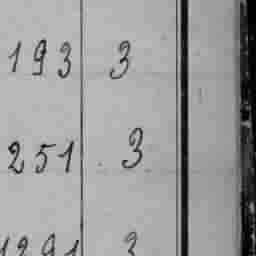 193 3
251 3
1291 3